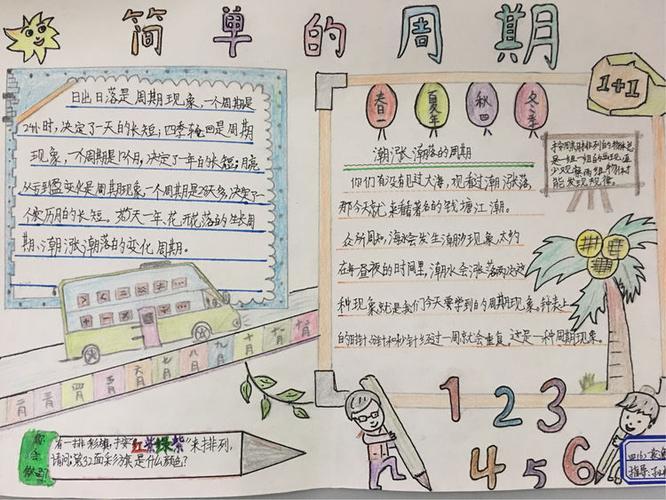 简单的周期
日出日落是周期现象,一个周期是
24小时,决定了一天的长短;四季轮回是周期
现象,一个周期是12个月,决定了一年的长短;月亮
变化是周期现象,一个周期是28天多,决定了一
个农历月的长短。
一年、花开花落的生长周
期、潮涨潮落的变化周期。
春一
夏二
秋四
冬季
1+1
潮涨潮落的周期
你们有没有见过大海,观看过潮涨潮落,
那今天就来看看著名的钱塘江潮。
众所周知,海水会发生潮汐现象,大约
在每昼夜的时间里,潮水会涨落两次,这
种现象就是我们今天要学到的周期现象,钟表上
的时针、分针和秒针,经过一周就会重复,这是一种周期现象。
按周期排列的物体总
是一组一组的出现,至
少观察两组物体才
能发现规律。
二月
三月
四月
五月
六月
七月
八月
九月
十月
十一月
你会做吗
有一排彩旗,按"红紫绿紫"来排列,
请问:第32面彩旗是什么颜色?
1 2 3
4 5 6